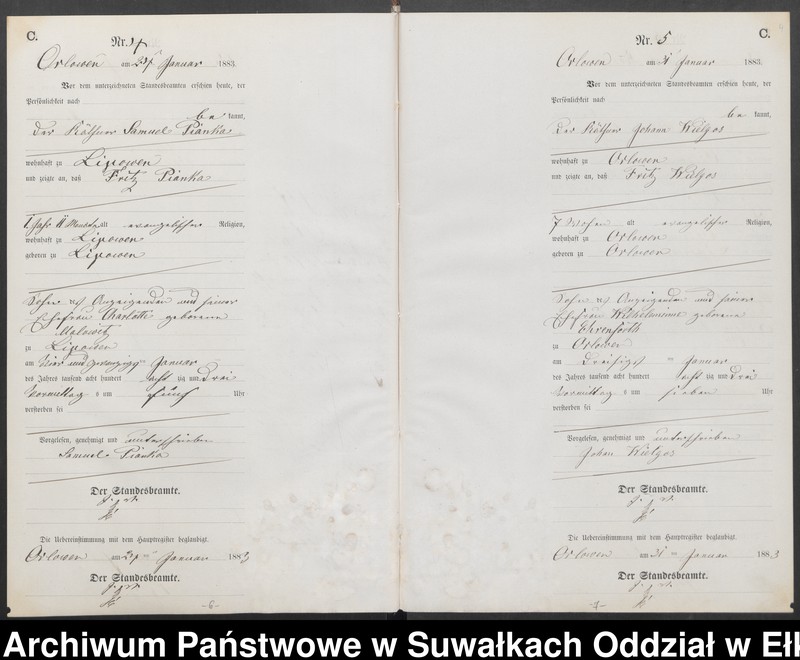 C.
Nr. 4
Orlowen am 24 Januar 1883.
Vor dem unterzeichneten Standesbeamten erschien heute, der
Persönlichkeit nach
be kannt,
der Käthner Samuel Pianka
wohnhaft zu Lipowen
und zeigte an, daß Fritz Pianka
1 Jahr 11 Monate alt evangelischer Religion,
wohnhaft zu Lipowen
geboren zu Lipowen
Sohn des Anzeigenden und seiner
Ehefrau Charlotte geborene
zu Lipowen
am vier und zwanzigsten Januar
des Jahres tausend acht hundert acht zig und drei
Vormittag s um fünf Uhr
verstorben sei
Vorgelesen, genehmigt und unterschrieben
Samuel Pianka
Der Standesbeamte.
Die Uebereinstimmung mit dem Hauptregister beglaubigt.
Orlowen am 24 ten Januar 1883
Der Standesbeamte.
-6-
C.
Nr. 5
Orlowen am 31 Januar 1883.
Vor dem unterzeichneten Standesbeamten erschien heute, der
Persönlichkeit nach
be kannt,
der Käthner Johann Kulgos
wohnhaft zu Orlowen
und zeigte an, daß Fritz Kulgos
7 Wochen alt evangelischer Religion,
wohnhaft zu Orlowen
geboren zu Orlowen
Sohn des Anzeigenden und seiner
Ehefrau Wilhelmine geborene
Ehrenforth
zu Orlowen
am dreißigsten Januar
des Jahres tausend acht hundert acht zig und drei
Vormittag s um sieben Uhr
verstorben sei
Vorgelesen, genehmigt und unterschrieben
Johan Kulgos
Der Standesbeamte.
Die Uebereinstimmung mit dem Hauptregister beglaubigt.
Orlowen am 31 ten Januar 1883
Der Standesbeamte.
-7-
Archiwum Państwowe w Suwałkach Oddział w Ełk